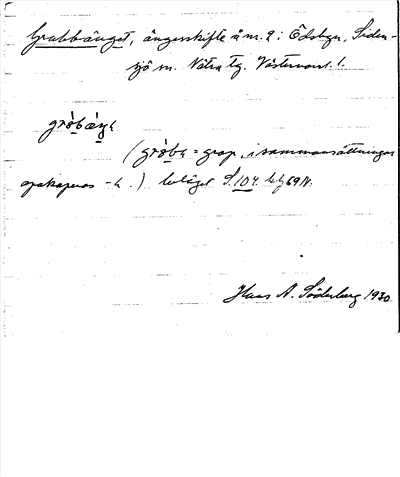 Grubbänget, ängesskifte å nr. 2 i Ödsbyn, Siden-
sjö sn. Nätra tg. Västernorrl. l.
gròbæŋe
(gròbe = grop, i sammansättningar
apokoperas -e.) beläget S. 104. bl 69 N.
Hans A. Söderberg 1930.